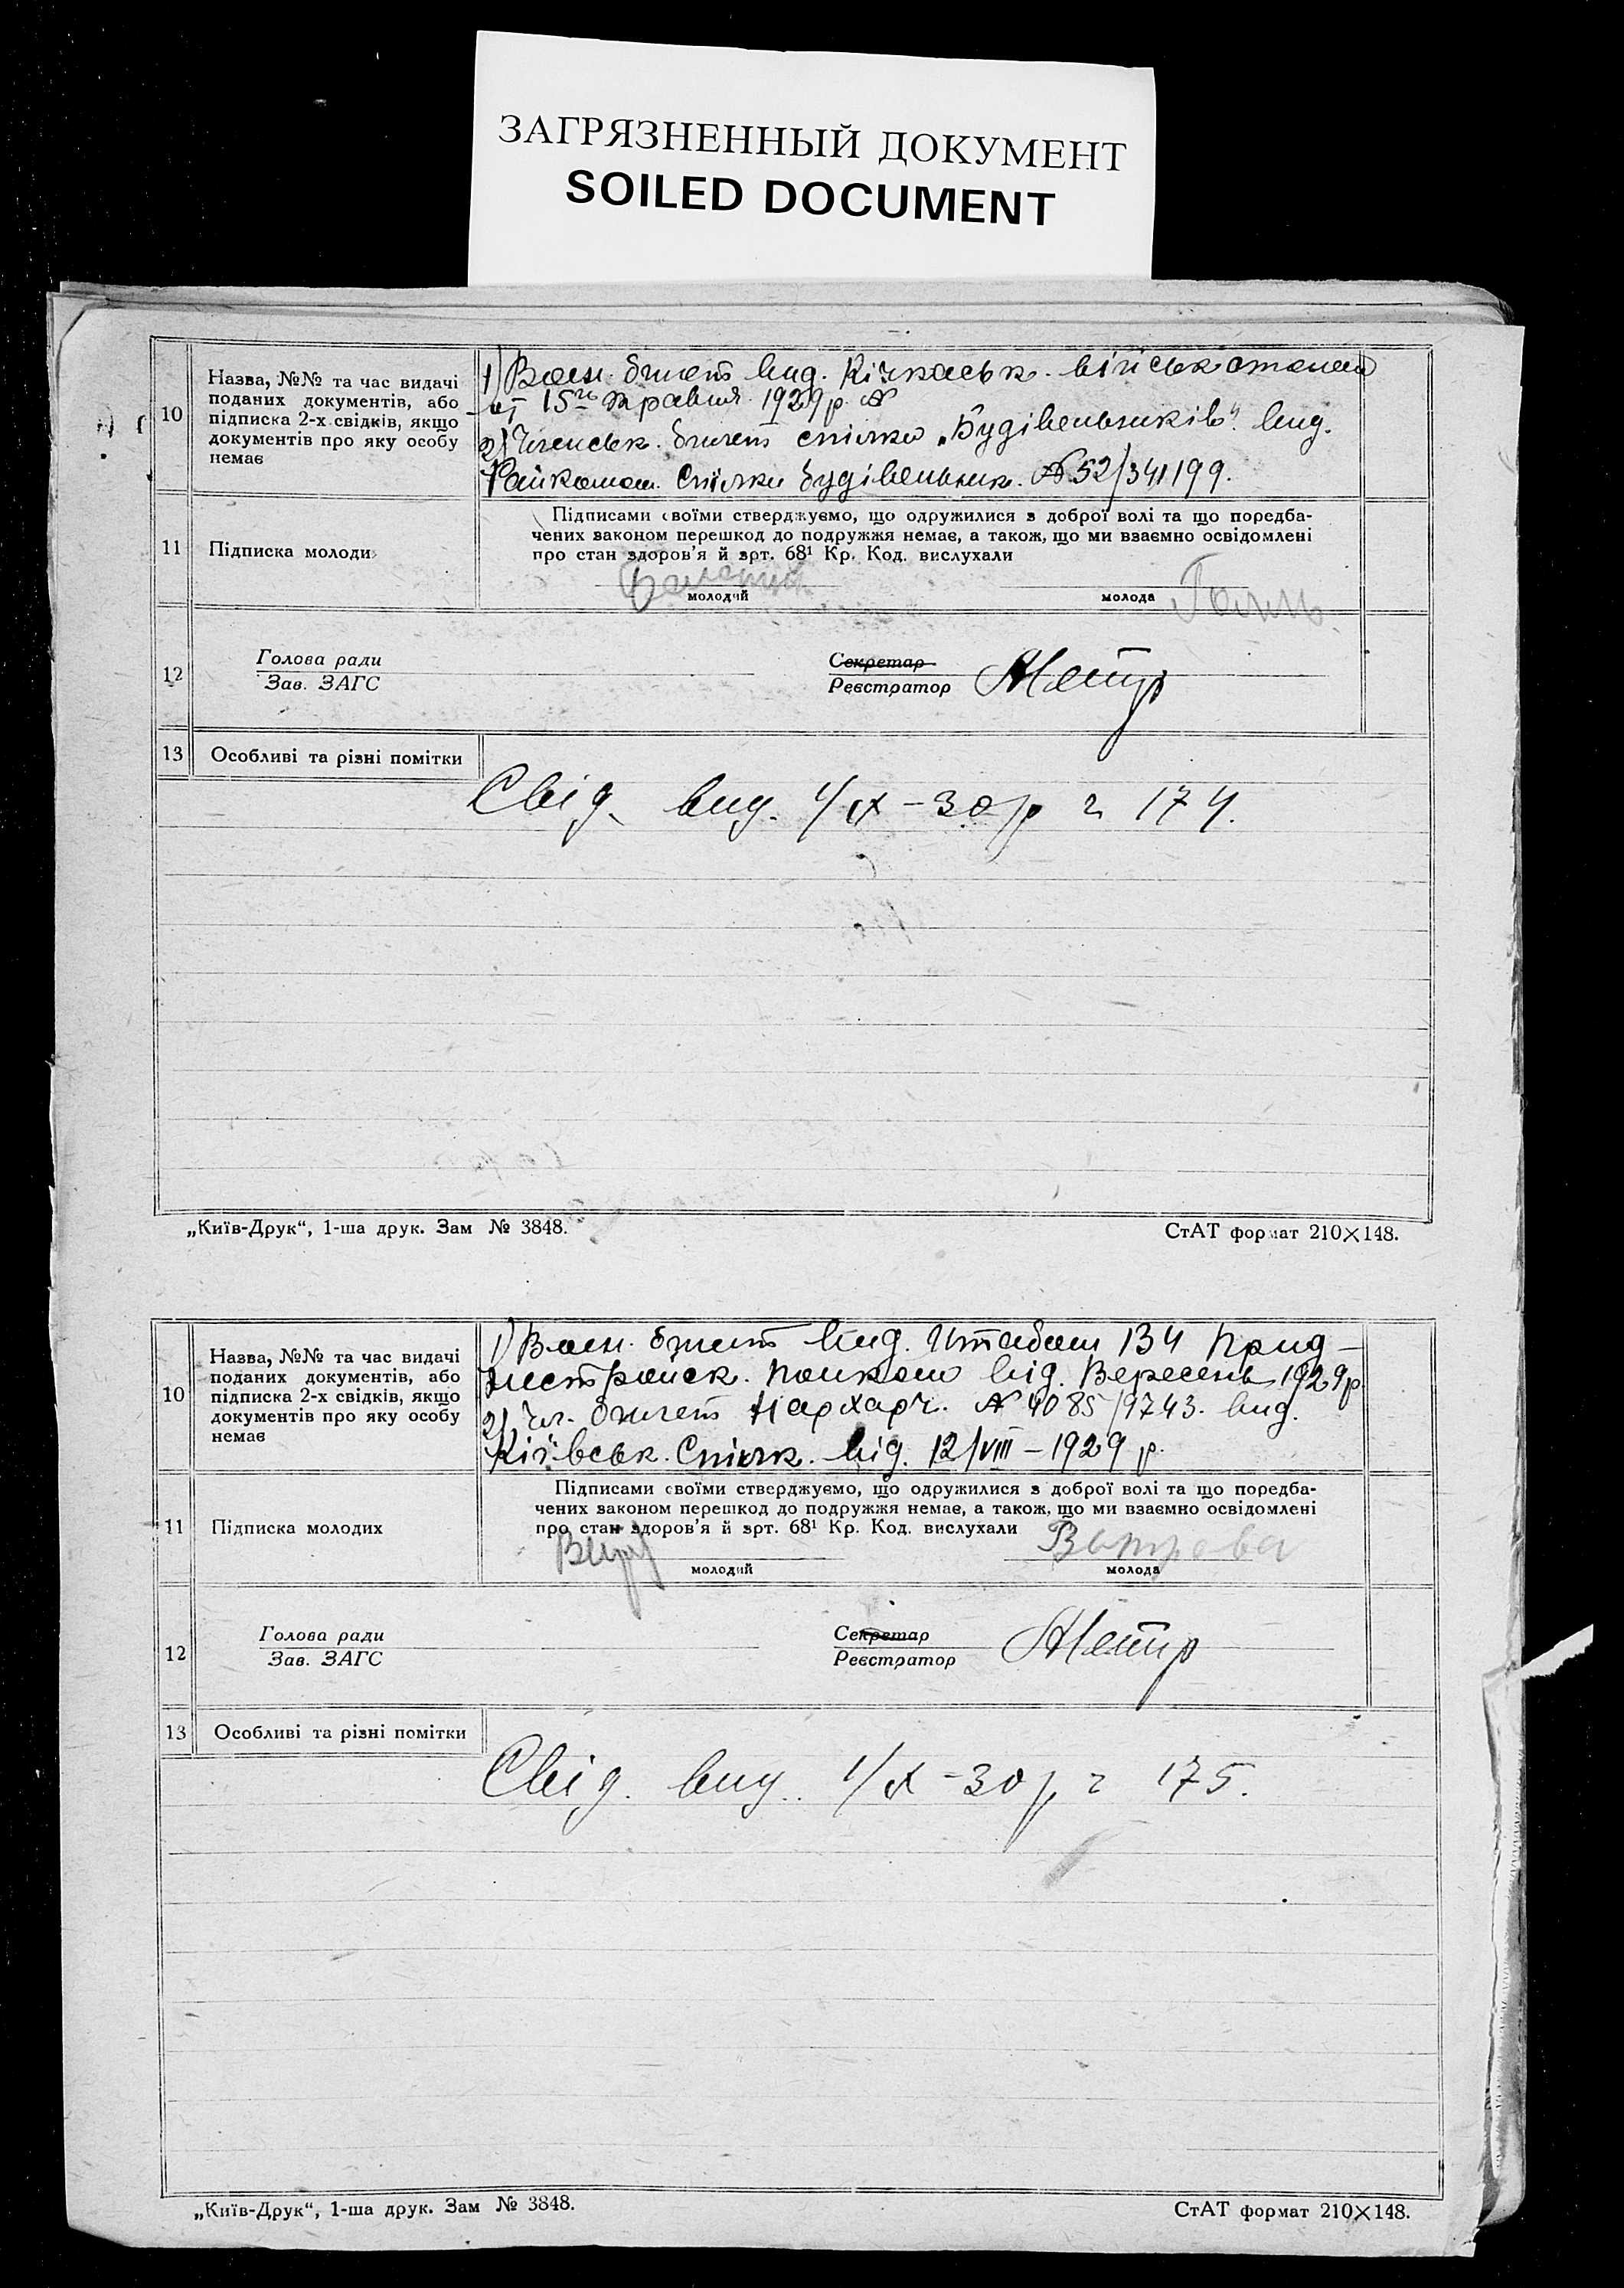 ЗАГРЯЗНЕННЫЙ ДОКУМЕНТ
SOILED DOCUMENT
10
Назва, №№ та час видачі
поданих документів, або
підписка 2-х свідків, якщо
документів про яку особу
немає
1) Воєн. билет вид. Кічкаськ. військстолом
от 15го травня 1929 р. №
2) Членськ. билет спілки „Будівельників" вид.
Райкомом. Спілки будівельник. № 52/341199.
11
Підписка молоди
Підписами своїми стверджуємо, що одружилися з доброї волі та що поредба-
чених законом перешкод до подружжя немає, а також, що ми взаємно освідомлені
про стан здоров'я й арт. 68¹ Кр. Код. вислухали
молодий
молода
12
Голова ради
Зав. ЗАГС
Секретар
Реєстратор
13
Особливі та різні помітки
Свід. вид. 1/X-30 р 174.
„Київ-Друк“, 1-ша друк. Зам № 3848.
СтАТ формат 210×148.
10
Назва, №№ та час видачі
поданих документів, або
підписка 2-х свідків, якщо
документів про яку особу
немає
1) Воєн. билет вид. Штабом 134 Прид-
полком від. Вересень 1929р
2) Чл. билет Нархарч. № 4085/9743. вид.
Київськ. Спілк. від. 12/VIII-1929 р.
11
Підписка молодих
Підписами своїми стверджуємо, що одружилися з доброї волі та що поредба-
чених законом перешкод до подружжя немає, а також, що ми взаємно освідомлені
про стан здоров'я й арт. 68¹ Кр. Код. вислухали
молодий
молода
12
Голова ради
Зав. ЗАГС
Секретар
Реєстратор
13
Особливі та різні помітки
Свід. вид. 1/X-30 р 175.
„Київ-Друк“, 1-ша друк. Зам № 3848.
СтАТ формат 210×148.